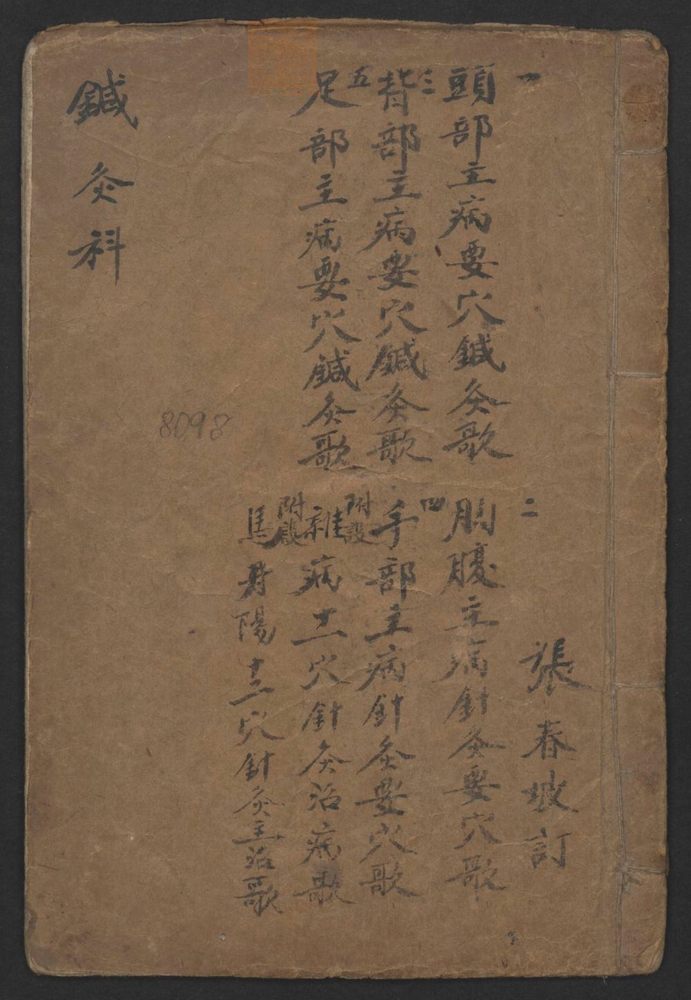 張春坡訂
一
頭部主病要穴鍼灸歌
二
胸腹主病針灸要穴歌
三
背部主病要穴鍼灸歌
四
手部主病針灸要穴歌
五
足部主病要穴鍼灸歌
附設
雜病十一穴針灸治病歌
附設
馬丹陽十二穴針灸主治歌
鍼灸科
8098